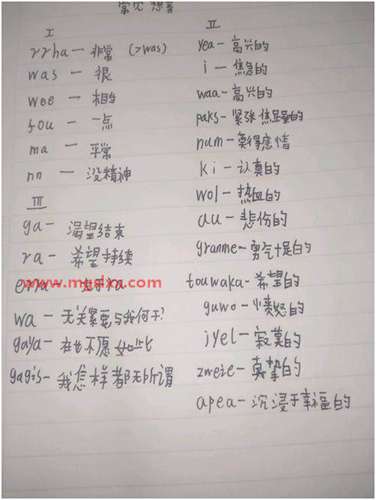 常见想音
I
rrha — 非常 (>was)
was — 很
wee — 相当
fou — 一点
ma — 平常
nn — 没精神
II
yea — 高兴的
i — 焦急的
waa — 高兴的
paks — 紧张焦虑的
num — 莫得感情
ki — 认真的
wol — 热血的
au — 悲伤的
granme — 勇气十足的
touwaka — 希望的
guwo — 愤怒的
jyel — 寂寞的
zweie — 真挚的
apea — 沉浸于幸福的
III
ga — 渴望结束
ra — 希望持续
erra —
wa — 无关紧要与我何干?
gaya — 再也不愿如此
gagis — 我怎样都无所谓
www.mgdxa.com